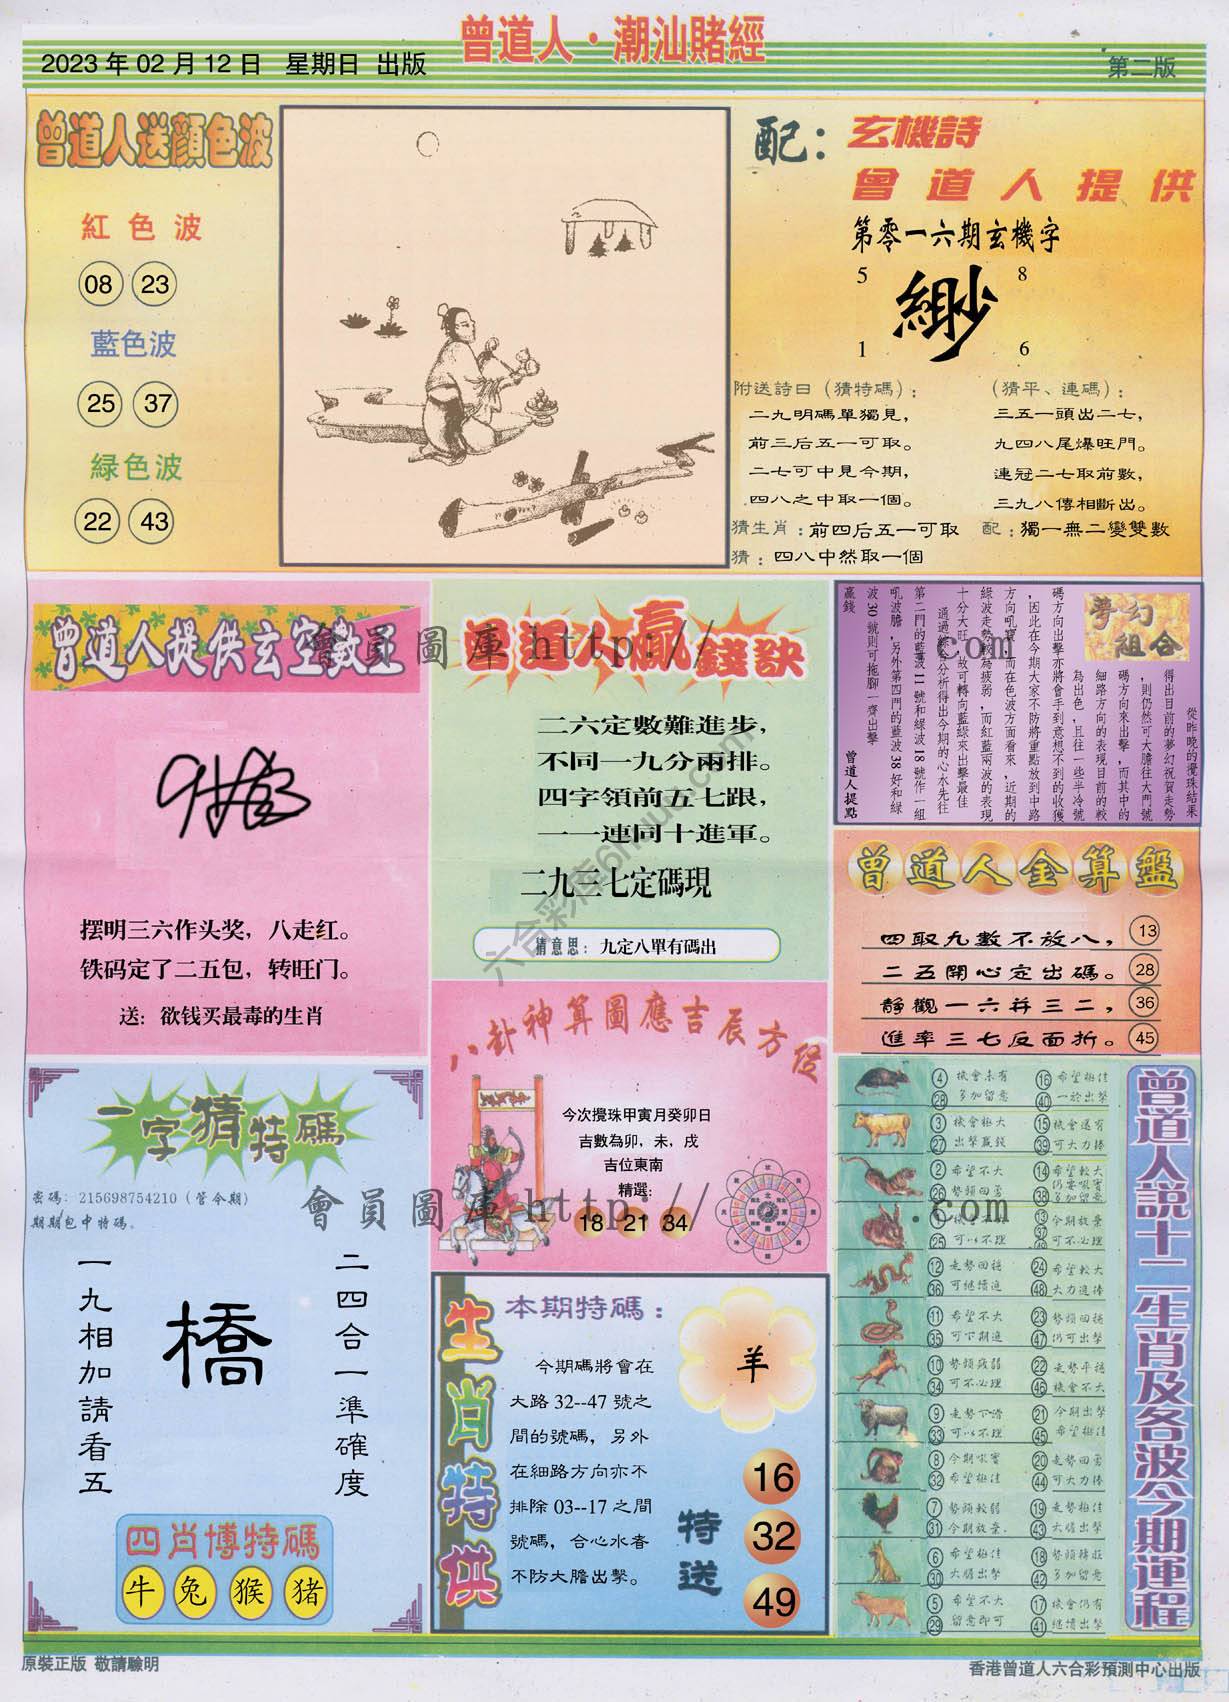 曾道人·潮汕賭經
2023 年 02 月 12 日 星期日 出版
第二版
曾道人送顏色波
紅色波
08 23
藍色波
25 37
綠色波
22 43
配：玄機詩
曾道人提供
第零一六期玄機字
5 8
緲
1 6
附送詩曰（猜特碼）：
二九明碼單獨見，
前三后五一可取。
二七可中見今期，
四八之中取一個。
（猜平、連碼）：
三五一頭出二七，
九四八尾爆旺門。
連冠二七取前數，
三九八傳相斷出。
猜生肖：前四后五一可取 配：獨一無二變雙數
猜：四八中然取一個
曾道人提供玄空數王
摆明三六作头奖，八走红。
铁码定了二五包，转旺门。
送：欲钱买最毒的生肖
會員圖庫 http://
.com
曾道人贏錢訣
二六定數難進步，
不同一九分兩排。
四字領前五七跟，
一一連同十進軍。
二九三七定碼現
猜意思：九定八單有碼出
夢幻組合
從昨晚的攪珠結果
得出目前的夢幻祝賀走勢
，則仍然可大膽往大門號
碼方向來出擊，而其中的
細路方向的表現目前的較
為出色，且往一些半冷號
碼方向出擊亦將會手到意想不到的收獲
，因此在今期大家不防將重點放到中路
方向吼實，而在色波方面看來，近期的
綠波走勢較為疲弱，而紅藍兩波的表現
十分大旺，故可轉向藍綠來出擊最佳
通過綜合分析得出今期的心水先往
第二門的藍波 11 號和綠波 18 號作一組
吼波膽，另外第四門的藍波 38 好和綠
波 30 號則可拖腳一齊出擊
贏錢
曾道人提點
曾道人金算盤
四取九數不放八， 13
二五開心定出碼。 28
靜觀一六并三二， 36
進率三七反面折。 45
八卦神算圖應吉辰方位
今次攪珠甲寅月癸卯日
吉數為卯，未，戌
吉位東南
精選：
18 21 34
會員圖庫 http://
.com
一字猜特碼
密碼：215698754210（管今期）
期期包中特碼。
二四合一準確度
橋
一九相加請看五
四肖博特碼
牛 兔 猴 猪
生肖特供
本期特碼：
今期碼將會在
大路 32--47 號之
間的號碼，另外
在細路方向亦不
排除 03--17 之間
號碼，合心水者
不防大膽出擊。
羊
特送
16
32
49
曾道人説十二生肖及各波今期運程
4 機會未有 16 希望極佳
28 多加留意 40 一於出擊
3 機會極大 15 機會還有
27 出擊贏錢 39 可大力捧
2 希望不大 14 希望較大
26 勢頭回勇 38 多加留意
25 可以不理 可不必理
12 走勢回穩 24 希望較大
36 可繼續追 48 大力追捧
11 希望不大 23 勢頭回穩
35 可下期追 47 仍可出擊
10 勢頭疲弱 22 走勢平穩
34 可不必理 46 機會不大
9 走勢下滑 21 今期出擊
33 可以不理 45 希望極佳
8 今期吼實 20 走勢回勇
32 希望極佳 44 可大力捧
7 勢頭較弱 19 走勢極佳
31 今期放棄. 43 大膽出擊
6 希望極佳 18 勢頭轉旺
30 大膽出擊 42 多加留意
5 希望不大 17 機會仍有
29 留意即可 41 繼續出擊
六合彩库6huk.com
原裝正版 敬請驗明
香港曾道人六合彩預測中心出版